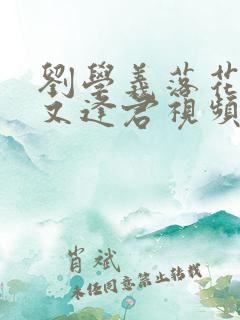 劉學義落花
又逢君視頻
肖斌
未经同意禁止转载